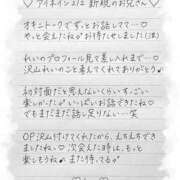 ♡ アイネイン 2/2 新規のお兄さん ♡
オキニトークでずっとお話してて…♡
やっと会えたね♡ お待たせしました(涙)
れいのプロフィール見て差し入れまで…♡
沢山れいのこと考えてくれてありがとう。
初対面だと思えないくらいすっごい
楽しかった♡ いっぱいお話できたね
でもまだまだ話し足りない…笑
OP沢山付けてくれたから、えちえちでき
ましたね♡ 次会えた時は、もっと
楽しもうね♪ また待ってる♡